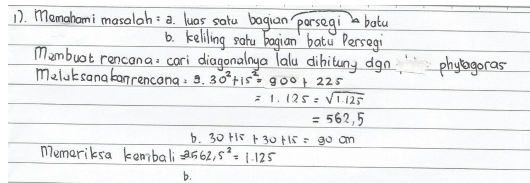 1). Memahami masalah : a. luas satu bagian persegi batu
b. keliling satu bagian batu Persegi
Membuat rencana : cari diagonalnya lalu dihitung dgn phytagoras
Melaksanakan rencana : a. 30² + 15² = 900 + 225
= 1.125 = √1.125
= 562,5
b. 30 + 15 + 30 + 15 = 90 cm
Memeriksa kembali = 562,5² = 1.125
b.